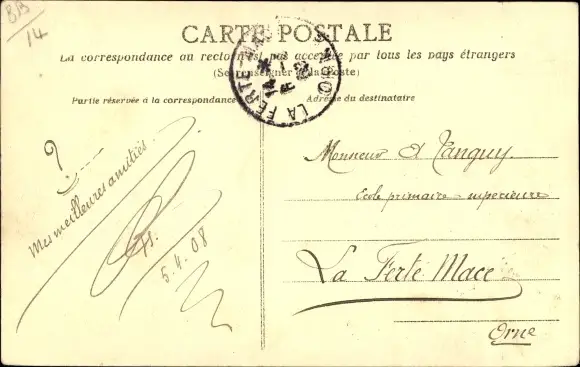 BB
14
CARTE POSTALE
La correspondance au recto n'est pas acceptée par tous les pays étrangers
(Se renseigner à la Poste)
Partie réservée à la correspondance
Adresse du destinataire
LA FERTE-MACE
ORNE
?
Mes meilleures amitiés.
5.4.08
Monsieur A Tanguy.
Ecole primaire superieure
La Ferté Macé
Orne